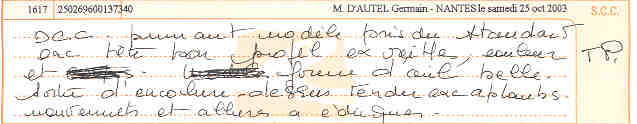 1617 250269600137340 M. D'AUTEL Germain - NANTES le samedi 25 oct 2003 S.C.C.
D.C.C. puissant modèle près du standard
exc tête bon profil ex oreilles, couleur
et forme d'œil belle. TB.
sortie d'encolure - dessus tendu exc aplombs.
mouvements et allures à éduquer.